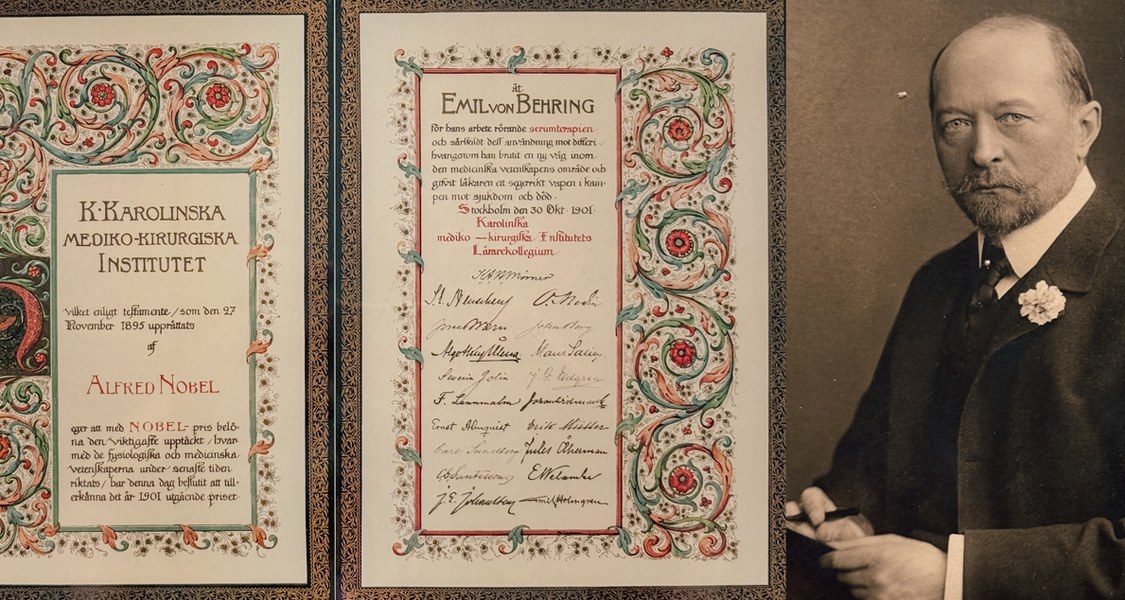 K. KAROLINSKA
MEDIKO-KIRURGISKA
INSTITUTET
vilket enligt testamente / som den 27
November 1895 upprättats
af
ALFRED NOBEL
eger att med NOBEL-pris belö-
na den viktigaste upptäckt / hvar-
med de fysiologiska och medicinska
vetenskaperna under senaste tiden
riktats / har denna dag beslutit att till-
erkänna det år 1901 utgående priset
åt
EMIL VON BEHRING
för hans arbete rörande serumterapien
och särskildt dess användning mot difteri
hvarigenom han brutit en ny väg inom
den medicinska vetenskapens område och
gifvit läkaren ett segerrikt vapen i kam-
pen mot sjukdom och död.
Stockholm den 30 Okt. 1901.
Karolinska
mediko-kirurgiska Institutets
Lärarekollegium
K.A.H. Mörner
Severin Jolin
F. Lennmalm
Ernst Almquist Erik Müller
Carl Sundberg Jules Åkerman
C.G. Santesson E. Welander
J.E. Johansson Emil Holmgren